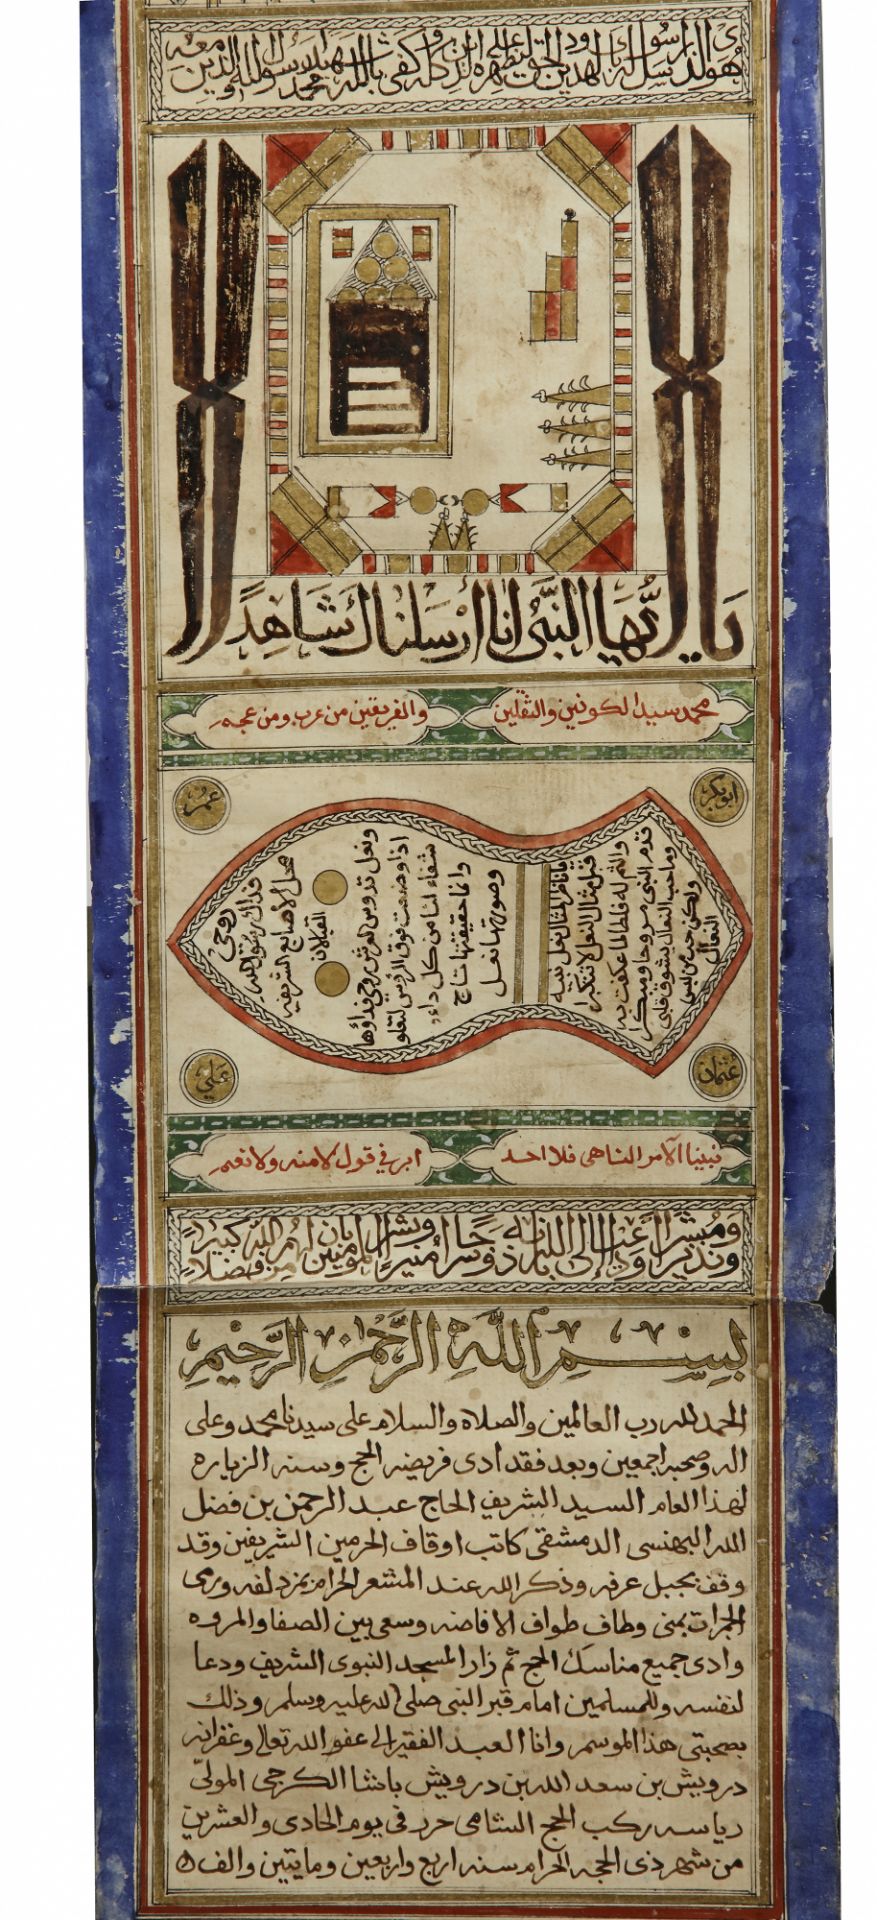 هو الذي ارسل رسوله بالهدى ودين الحق ليظهره على الدين كله وكفى بالله شهيدا محمد رسول الله والذين معه
يا ايها النبي انا ارسلناك شاهدا
محمد سيد الكونين والثقلين
والفريقين من عرب ومن عجم
ابوبكر
عمر
عثمان
علي
ولكن حب من لبس النعال
وما حب النعال يشوق قلبي
قدم النبي مروحا ومبكرا
والثم له فلطالما عكفت به
قبل مثال النعل لا تتكبرا
يا ناظرا لمثال نعل نبيه
وصورتها نعل
وانما حقيقتها تاج
شفاء لنا من كل داء
اذا وضعت فوق الرؤس لتعلو
ونعل تدوس العرش روحي فداؤها
القبالان
محل الاصابع الشريفه
فداك يا رسول الله
روحي
نبينا الآمر الناهي فلا احد
ابر في قول لا منه ولا نعم
ومبشرا ونذيرا وداعيا الى الله باذنه وسراجا منيرا وبشر المؤمنين بان لهم من الله فضلا كبيرا
بسم الله الرحمن الرحيم
الحمد لله رب العالمين والصلاه والسلام على سيدنا محمد وعلى
اله وصحبه اجمعين وبعد فقد ادى فريضه الحج وسنه الزياره
لهذا العام السيد الشريف الحاج عبد الرحمن بن فضل
الله البهنسي الدمشقي كاتب اوقاف الحرمين الشريفين وقد
وقف بجبل عرفه وذكر الله عند المشعر الحرام بمزدلفه ورمى
الجمرات بمنى وطاف طواف الافاضه وسعى بين الصفا والمروه
وادى جميع مناسك الحج ثم زار المسجد النبوي الشريف ودعا
لنفسه وللمسلمين امام قبر النبي صلى الله عليه وسلم وذلك
بصحبتي هذا الموسم وانا العبد الفقير الى عفو الله تعالى وغفرانه
درويش بن سعد الله بن درويش باشا الكرجي المولى
رياسه ركب الحج الشامي حرر في يوم الحادي والعشرين
من شهر ذي الحجه الحرام سنه اربع واربعين ومايتين والف